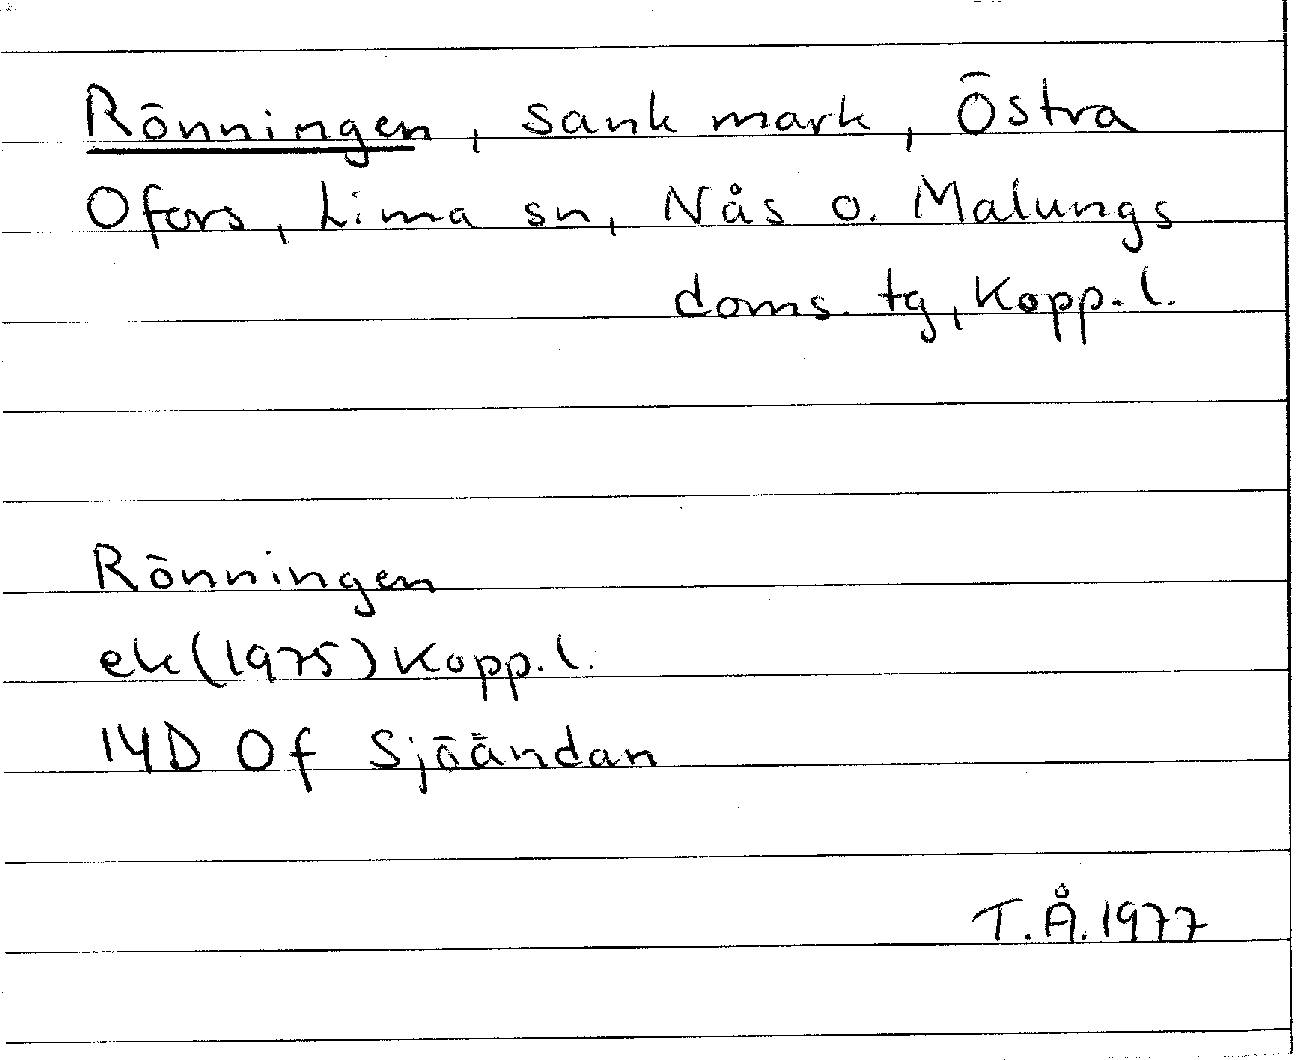 Rönningen, sank mark, Östra
Ofors, Lima sn, Nås o. Malungs
doms. tg, Kopp. l.
Rönningen
ek (1975) Kopp. l.
14D Of Sjöändan
T.Å. 1977